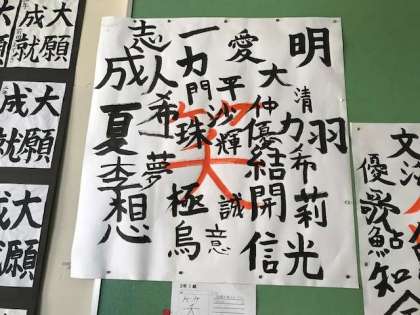 文
優歌
鮎知
明羽莉光
清力希
大仲優結開信
愛平沙輝誠意
笑
一力門珠極烏
志人希一夢
成夏李想
大願
成就
大願
成就
大願
成就
大願
成